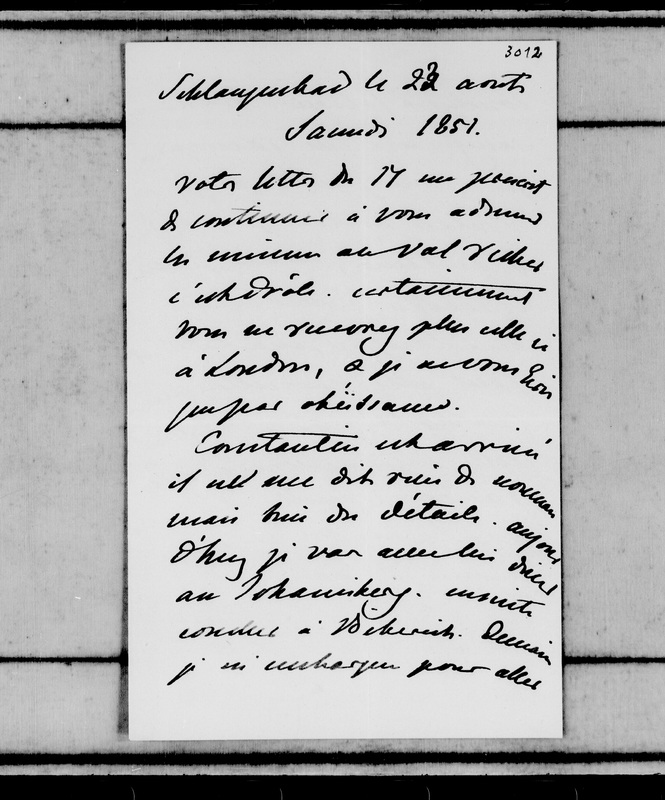 3012
Schlangenbad le 23 août
Samedi 1851.
Votre lettre du 17 me prescrit
de continuer à vous adresser
les miennes au Val Richer
c'est drôle. certainement
vous ne recevrez plus celle ci
à London, & je ne vous écris
que par obéissance.
Constantin est arrivé
il me dit rien de nouveau
mais bien des détails. aujour
d'huy je vas avec lui diner
au Johannisberg. ensuite
coucher à Biberich. Demain
je m'embarque pour aller